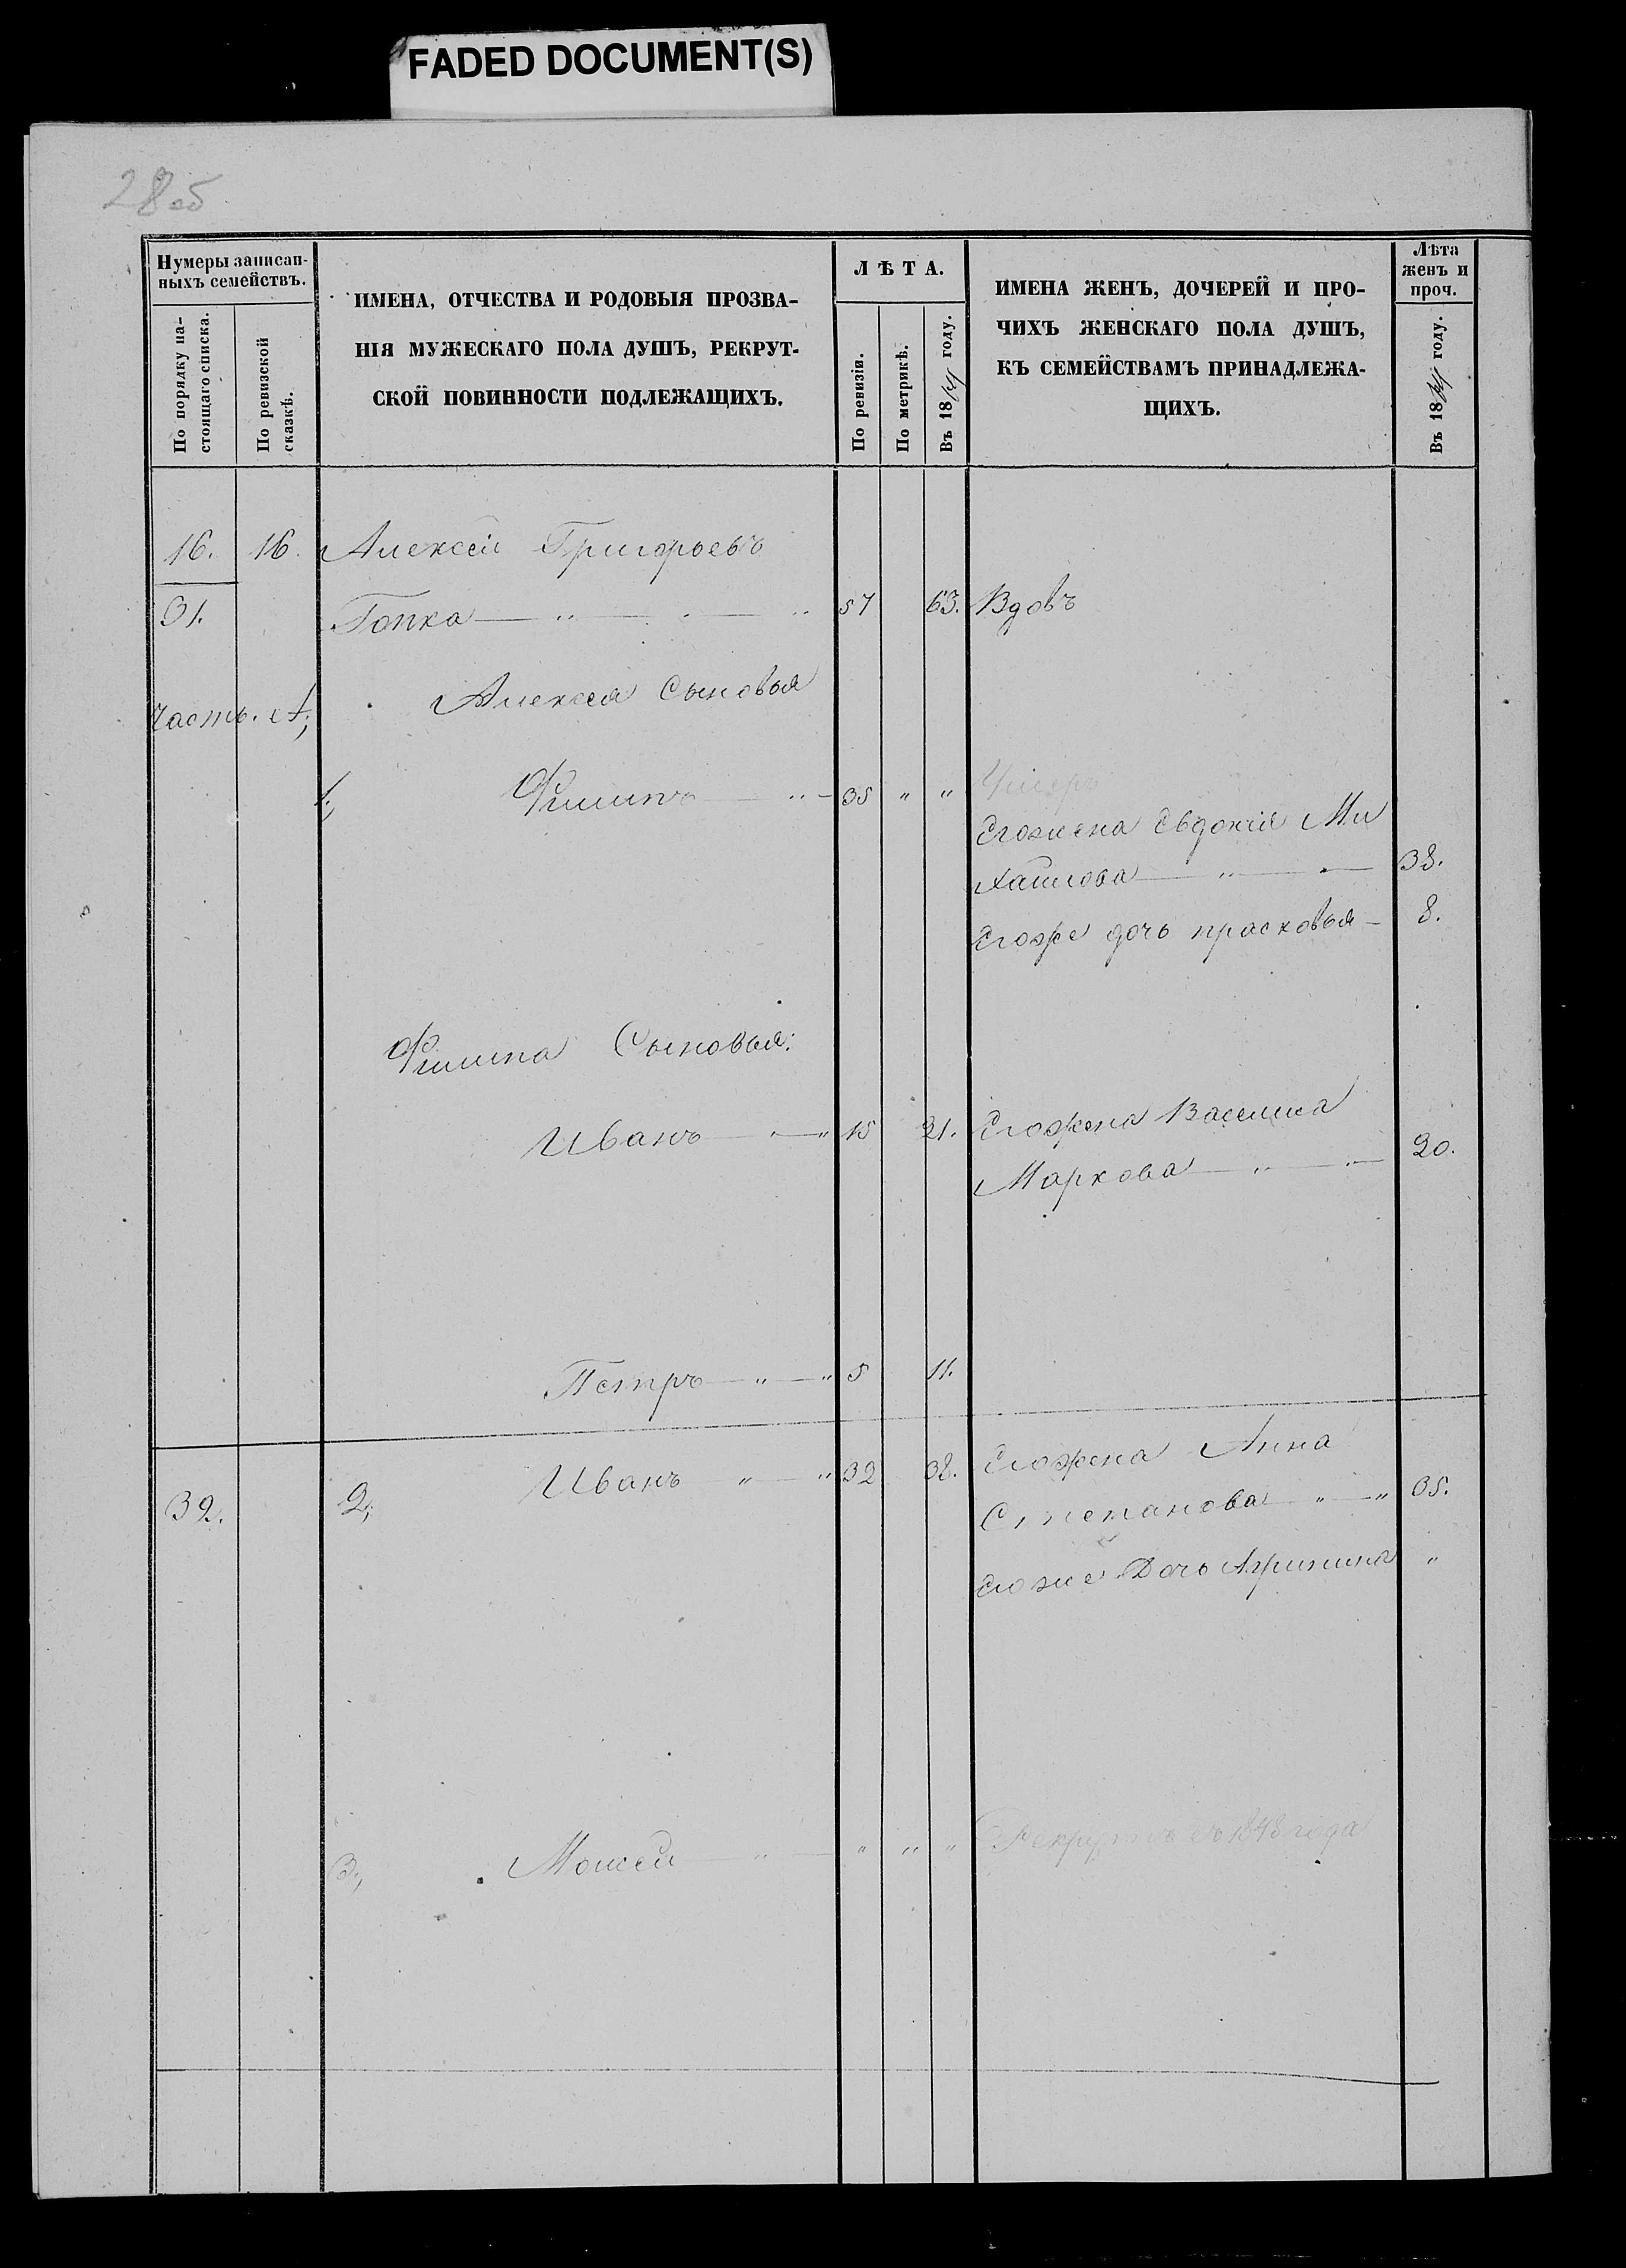 FADED DOCUMENT(S)
28 об
Нумеры записан-
ныхъ семействъ.
По порядку на-
стоящаго списка.
По ревизской
сказкѣ.
ИМЕНА, ОТЧЕСТВА И РОДОВЫЯ ПРОЗВА-
НІЯ МУЖЕСКАГО ПОЛА ДУШЪ, РЕКРУТ-
СКОЙ ПОВИННОСТИ ПОДЛЕЖАЩИХЪ.
ЛѢТА.
По ревизіи.
По метрикѣ.
Въ 18 году.
ИМЕНА ЖЕНЪ, ДОЧЕРЕЙ И ПРО-
ЧИХЪ ЖЕНСКАГО ПОЛА ДУШЪ,
КЪ СЕМЕЙСТВАМЪ ПРИНАДЛЕЖА-
ЩИХЪ.
Лѣта
женъ и
проч.
Въ 18 году.
16. 16. Алексей Григорьевъ
31. Гопка — " — " 57 63. Вдовъ
Часть. А; Алексея Сыновья
1; Филипъ — " — 35 " " Умеръ
Егожена Евдокия Ми
хайлова — " — 38.
Егоже дочь прасковья — 8.
Филипа Сыновья:
Иванъ — " 15 21. Егожена Василиса
Маркова — " — 20.
Петръ — " — " 5 11.
32. 2; Иванъ " — " 32 38. Егожена Анна
Степанова " — " 35.
Егоже Дочь "
3; Моисей — " — " " " Рекрутъ съ 1848 года